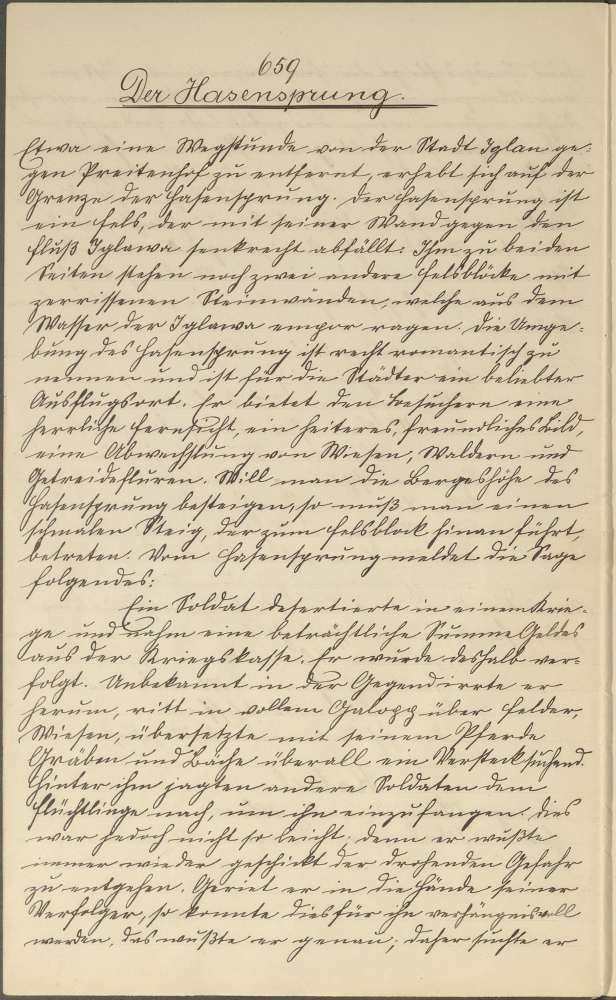 659
Der Hasensprung.
Etwa eine Wegstunde von der Stadt Iglau ge-
gen Preitenhof zu entfernt, erhebt sich auf der
Grenze der Hasensprung. Der Hasensprung ist
ein Fels, der mit seiner Wand gegen den
Fluß Iglawa senkrecht abfällt. Ihm zu beiden
Seiten stehen noch zwei andere Felsblöcke mit
zerrissenen Steinwänden, welche aus dem
Wasser der Iglawa empor ragen. Die Umge-
bung des Hasensprung ist recht romantisch zu
nennen und ist für die Städter ein beliebter
Ausflugsort. Er bietet den Besuchern eine
herrliche Fernsicht, ein heiteres, freundliches Bild,
eine Abwechslung von Wiesen, Waldern und
Getreidefluren. Will man die Bergeshöhe des
Hasensprung besteigen, so muß man einen
schmalen Steig, der zum Felsblock hinan führt,
betreten. Vom Hasensprung meldet die Sage
folgendes:
Ein Soldat desertierte in einem Krie-
ge und nahm eine beträchtliche Summe Geldes
aus der Kriegskasse. Er wurde deshalb ver-
folgt. Unbekannt in der Gegend irrte er
herum, ritt in vollem Galopp über Felder,
Wiesen, übersetzte mit seinem Pferde
Gräben und Bäche überall ein Versteck suchend.
Hinter ihm jagten andere Soldaten dem
Flüchtlinge nach, um ihn einzufangen. Dies
war jedoch nicht so leicht; denn er wußte
immer wieder geschickt der drohenden Gefahr
zu entgehen. Geriet er in die Hände seiner
Verfolger, so konnte dies für ihn verhängnisvoll
werden, das wußte er genau; daher suchte er